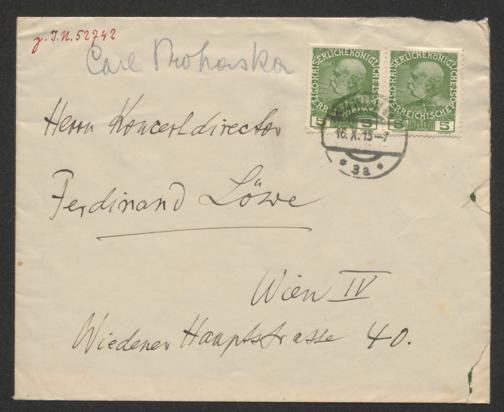 z. I.N. 52742
Carl Prohaska
KAISERLICHE KÖNIGLICHE KAISERLICHE KÖNIGLICHE
ÖSTERREICHISCHE
5 5 5
16.X.13-7
* 3a *
Herrn Koncertdirector
Ferdinand Löwe
Wien IV
Wiedener Hauptstrasse 40.